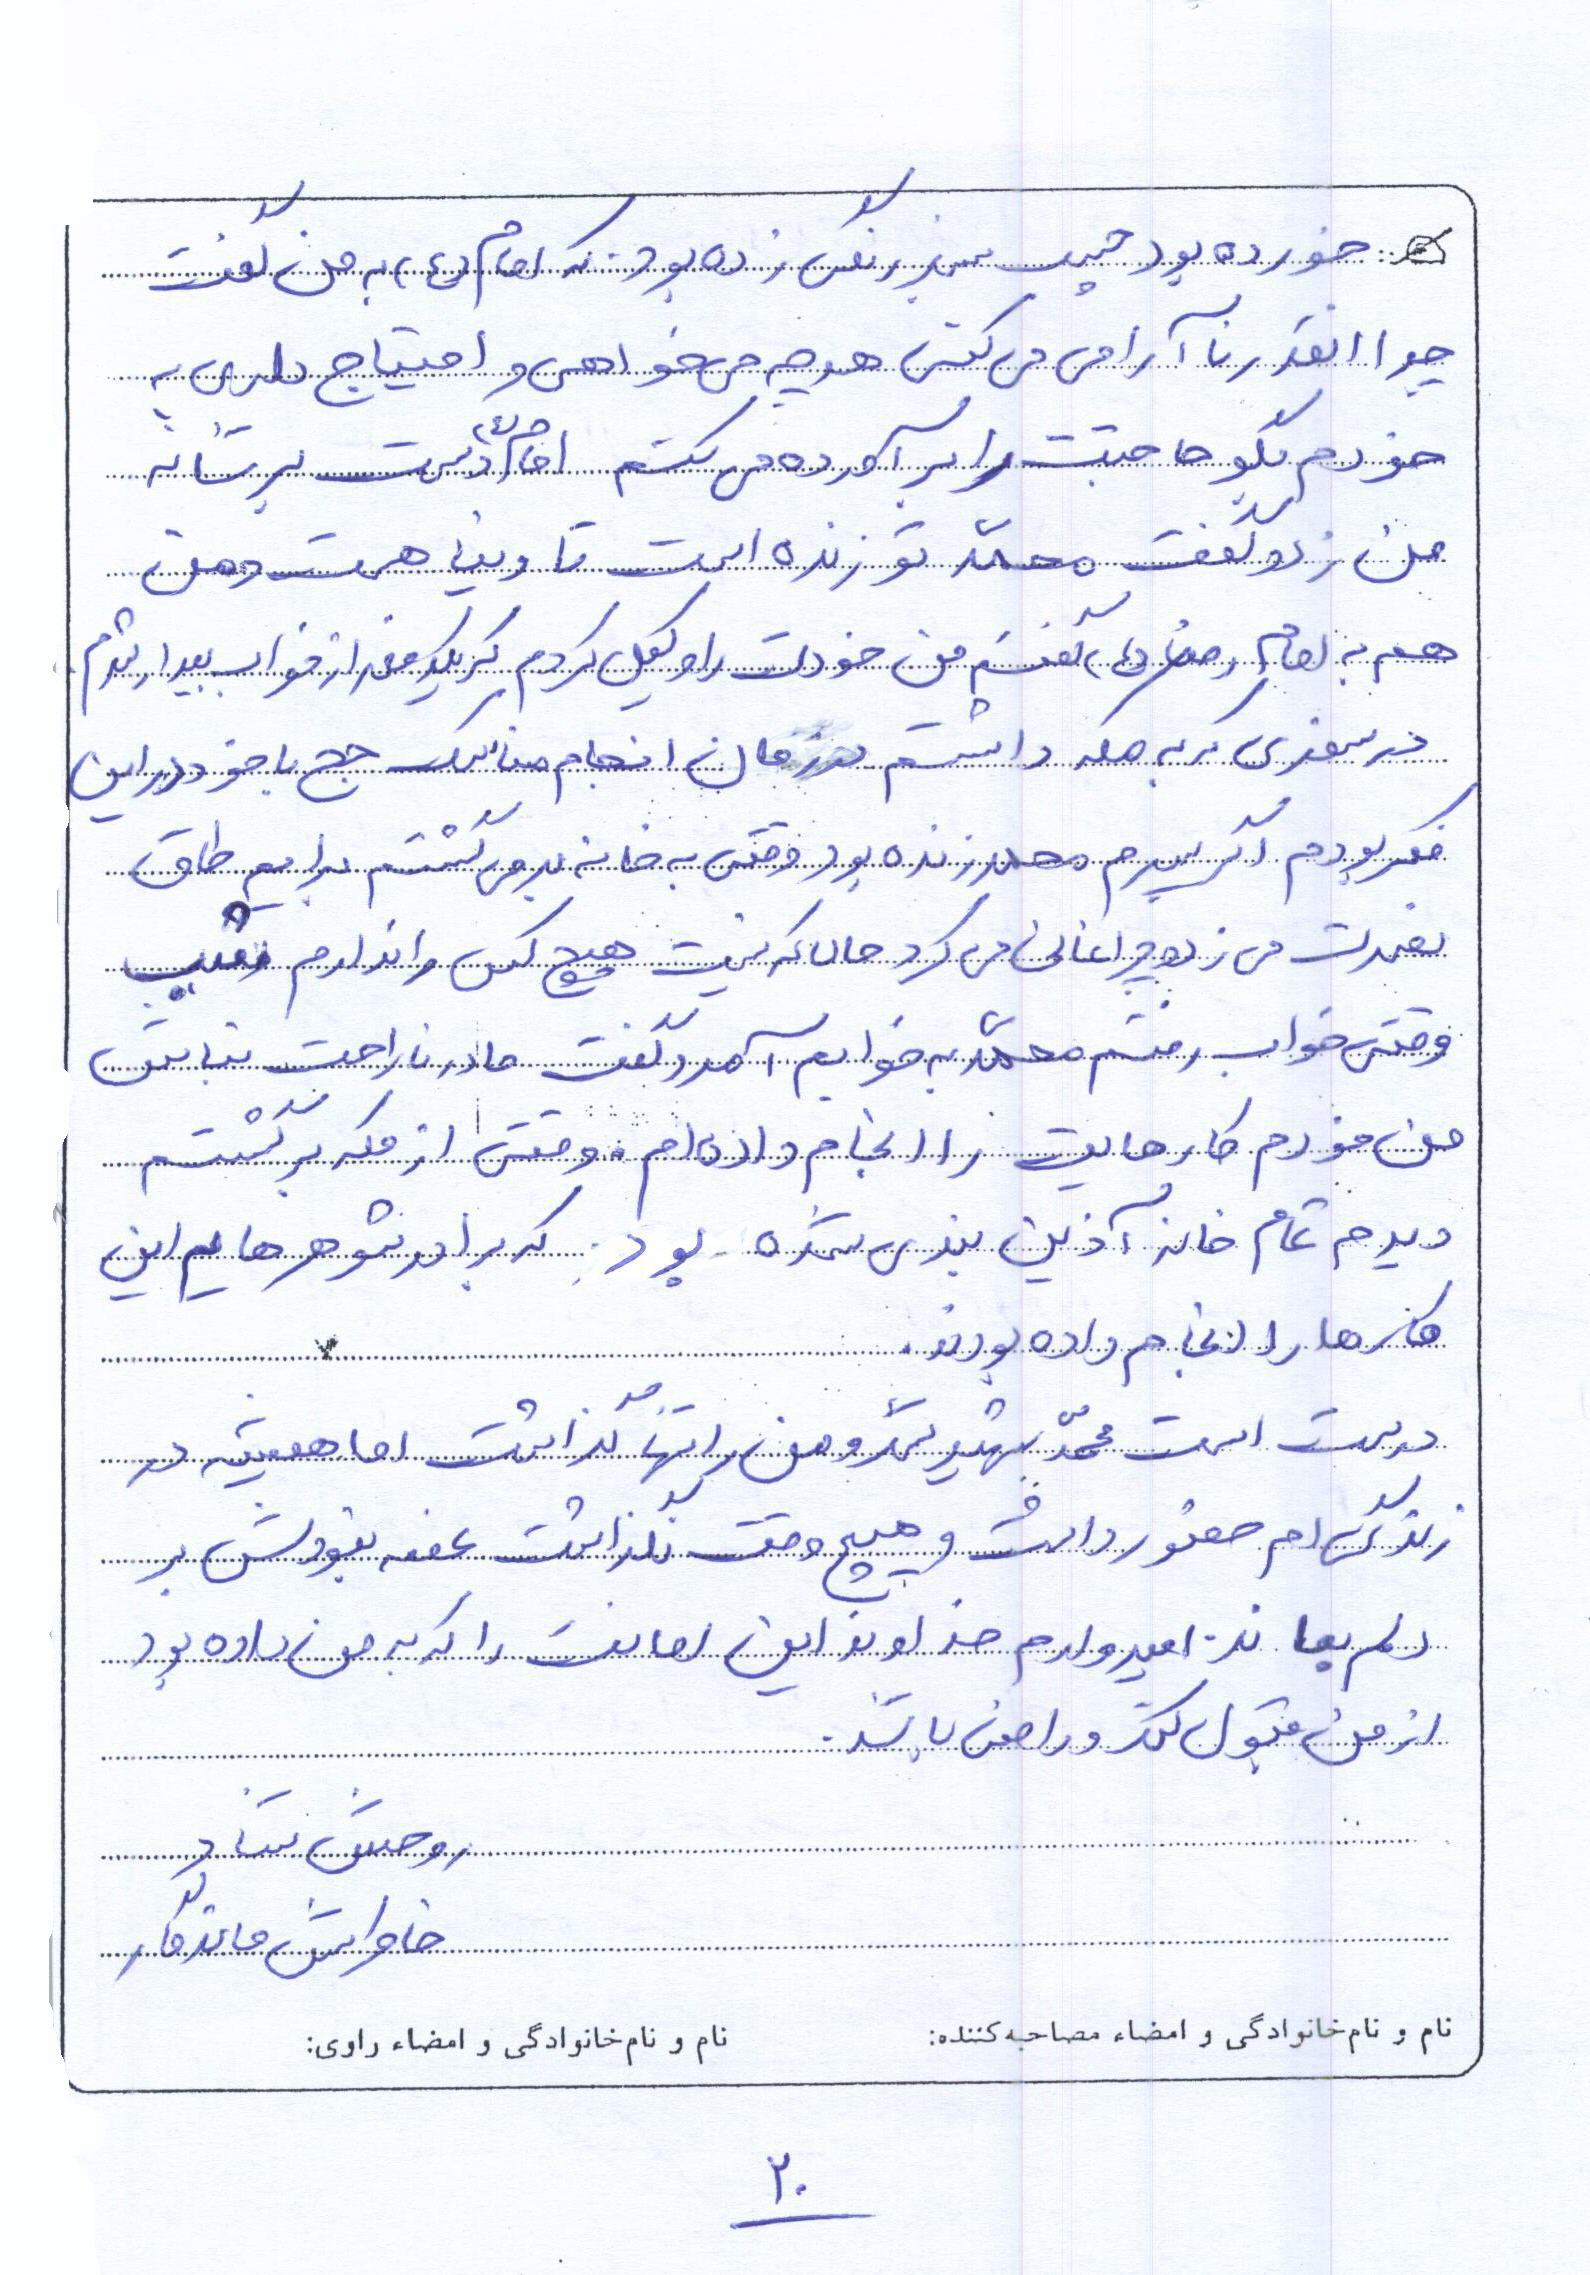 خورده بود چیپ سبز رنگی زده بود. که امام (ع) به من گفت
چرا انقدر نا آرامی می کنی هرچه می خواهی و احتیاج داری به
خودم بگو حاجتت را بر آورده می کنم امام (ع) دست بر شانه
من زد و گفت محمّد تو زنده است تا دنیا هست و من
هم به امام رضا (ع) گفتم من خودت را وکیل کردم که یکدفعه از خواب بیدار شدم.
در سفری که به مکه داشتم در زمان انجام مناسک حج با خود در این
فکر بودم اگر پسرم محمد زنده بود وقتی به خانه بر می گشتم برایم طاق
نصرت می زد و چراغانی می کرد حالا که نیست هیچ کس را ندارم شب
وقتی خواب رفتم محمّد به خوابم آمد و گفت مادر ناراحت نباش
من خودم کارهایت را انجام داده ام. وقتی از مکه برگشتم
دیدم تمام خانه آذین بندی شده بود. که برادر شوهرهایم این
کارها را انجام داده بودند.
درست است محمّد شهید شد و من را تنها گذاشت اما همیشه در
زندگی ام حضور داشت و هیچ وقت نگذاشت غصه نبودش بر
دلم بماند. امیدوارم خداوند این امانت را که به من داده بود
از من قبول کند و راضی باشد.
روحش شاد
خاطراتش ماندگار
نام و نام خانوادگی و امضاء مصاحبه کننده: نام و نام خانوادگی و امضاء راوی:
۲۰